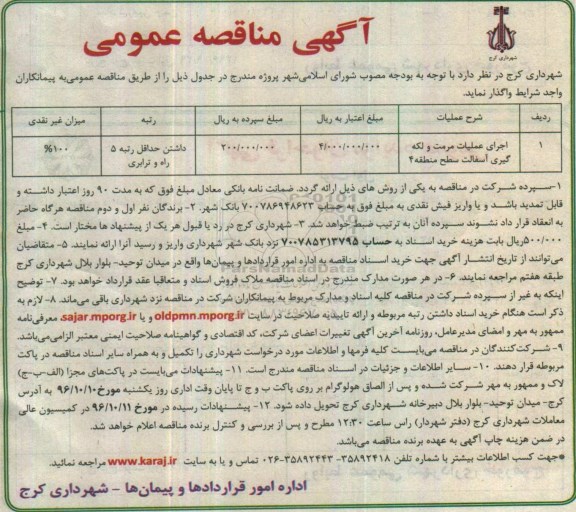 آگهی مناقصه عمومی
شهرداری کرج
شهرداری کرج در نظر دارد با توجه به بودجه مصوب شورای اسلامی‌شهر پروژه مندرج در جدول ذیل را از طریق مناقصه عمومی‌به پیمانکاران
واجد شرایط واگذار نماید.
ردیف شرح عملیات مبلغ اعتبار به ریال مبلغ سپرده به ریال رتبه میزان غیر نقدی
۱ اجرای عملیات مرمت و لکه ۴/۰۰۰/۰۰۰/۰۰۰ ۲۰۰/۰۰۰/۰۰۰ داشتن حداقل رتبه ۵ ۱۰۰%
گیری آسفالت سطح منطقه۴ راه و ترابری
۱-سپرده شرکت در مناقصه به یکی از روش های ذیل ارائه گردد. ضمانت نامه بانکی معادل مبلغ فوق که به مدت ۹۰ روز اعتبار داشته و
قابل تمدید باشد و یا واریز فیش نقدی به مبلغ فوق به حساب ۷۰۰۷۸۶۹۴۸۶۲۳ بانک شهر. ۲- برندگان نفر اول و دوم مناقصه هرگاه حاضر
به انعقاد قرار داد نشوند سپرده آنان به ترتیب ضبط خواهد شد. ۳- شهرداری کرج در رد یا قبول هر یک از پیشنهاد ها مختار است. ۴- مبلغ
۵۰۰/۰۰۰ریال بابت هزینه خرید اسناد به حساب ۷۰۰۷۸۵۳۱۳۷۹۵ نزد بانک شهر شهرداری واریز و رسید آنرا ارائه نمایند. ۵- متقاضیان
می‌توانند از تاریخ انتشار آگهی جهت خرید اسناد مناقصه به اداره امور قراردادها و پیمان‌ها واقع در میدان توحید- بلوار بلال شهرداری کرج
طبقه هفتم مراجعه نمایند. ۶- در هر صورت مدارک مندرج در اسناد مناقصه ملاک فروش اسناد و متعاقبا عقد قرارداد خواهد بود. ۷- توضیح
اینکه به غیر از سپرده شرکت در مناقصه کلیه اسناد و مدارک مربوط به پیمانکاران شرکت در مناقصه نزد شهرداری باقی می‌ماند. ۸- لازم به
ذکر است هنگام خرید اسناد داشتن رتبه مربوطه و ارائه تاییدیه صلاحیت در سایت oldpmn.mporg.ir و یا sajar.mporg.ir، معرفی‌نامه
ممهور به مهر و امضای مدیرعامل، روزنامه آخرین آگهی تغییرات اعضای شرکت، کد اقتصادی و گواهینامه صلاحیت ایمنی معتبر الزامی‌می‌باشد.
۹- شرکت‌کنندگان در مناقصه می‌بایست کلیه فرمها و اطلاعات مورد درخواست شهرداری را تکمیل و به همراه سایر اسناد مناقصه در پاکت
مربوطه قرار دهند. ۱۰- سایر اطلاعات و جزئیات در اسناد مناقصه مندرج است. ۱۱- پیشنهادات می‌بایت در پاکت‌های مجزا (الف-ب-ج)
لاک و ممهور به مهر شرکت شده و پس از الصاق هولوگرام بر روی پاکت ب و ج تا پایان وقت اداری روز یکشنبه مورخ۹۶/۱۰/۱۰ به آدرس
کرج- میدان توحید- بلوار بلال دبیرخانه شهرداری کرج تحویل داده شود. ۱۲- پیشنهادات رسیده در مورخ ۹۶/۱۰/۱۱ در کمیسیون عالی
معاملات شهرداری کرج (دفتر شهردار) راس ساعت ۱۲:۳۰ مطرح و پس از بررسی و کنترل برنده مناقصه اعلام خواهد شد.
در ضمن هزینه چاپ آگهی به عهده برنده مناقصه می‌باشد.
*جهت کسب اطلاعات بیشتر با شماره تلفن ۳۵۸۹۲۴۱۸-۳۵۸۹۲۴۴۳-۰۲۶ تماس و یا به سایت www.karaj.ir مراجعه نمائید.
اداره امور قراردادها و پیمان‌ها - شهرداری کرج